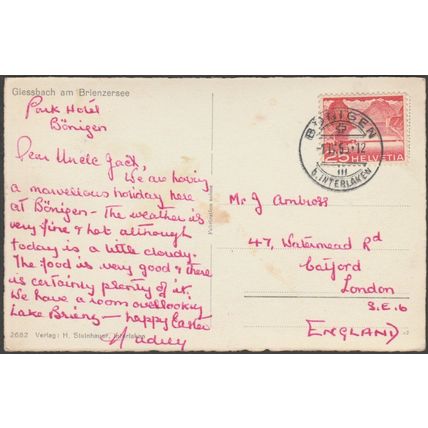 Giessbach am Brienzersee
Park Hotel
Bönigen
Dear Uncle Jack,
We are having
a marvellous holiday here
at Bönigen - The weather is
very fine & hot although
today is a little cloudy.
The food is very good & there
is certainly plenty of it.
We have a room overlooking
Lake Brienz - happy Easter
2682 Verlag: H. Steinhauer, Interlaken
BÖNIGEN
b. INTERLAKEN
25 HELVETIA
Mr J Ambross
47, Watermead Rd
Catford
London
S.E.6
ENGLAND